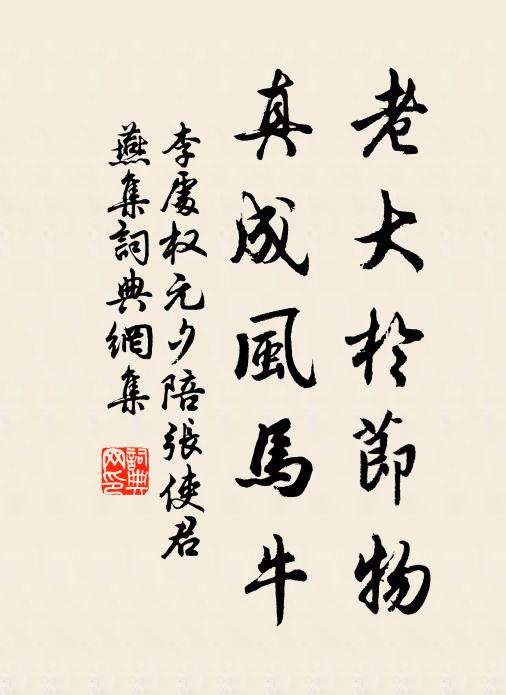 老大於節物
真成風馬牛
李處权元夕陪張使君
燕集詞典網集
詞典網印